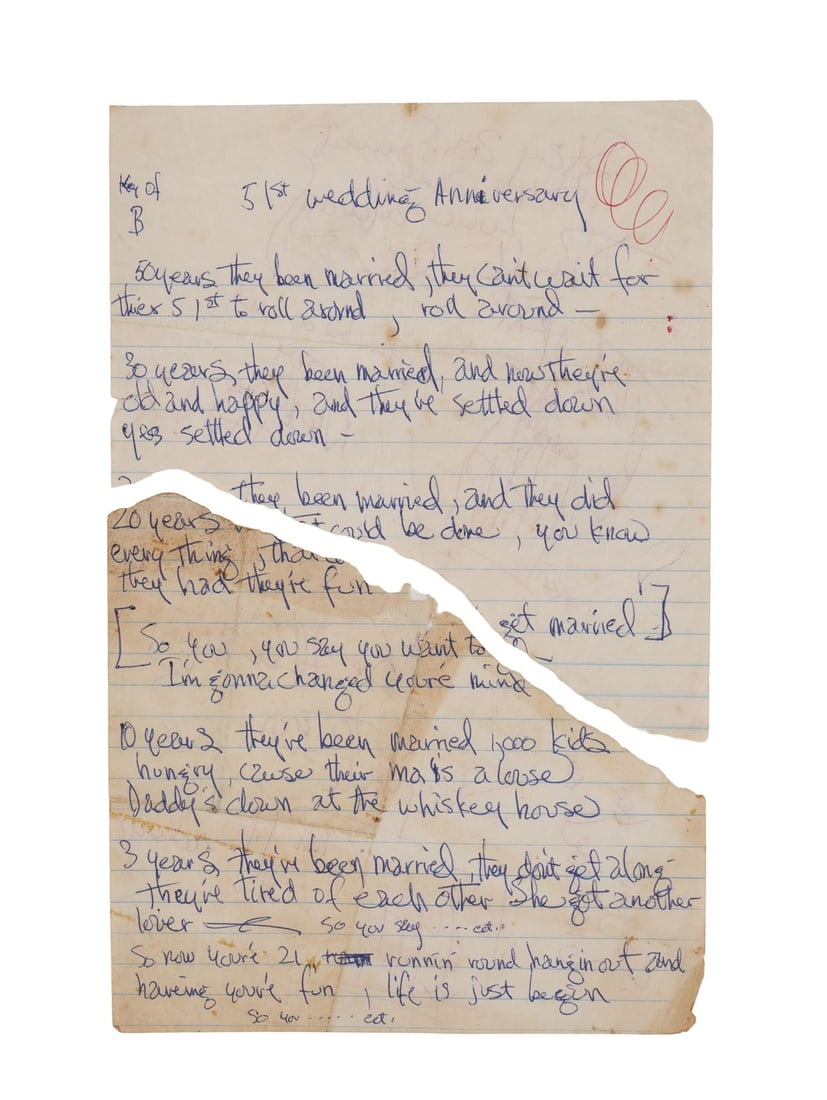 Key of
B
51st wedding Anniversary
50 years they been married, they can't wait for
thier 51st to roll around, roll around —
30 years, they been married, and now they're
old and happy, and they've settled down
yes settled down —
they been married, and they did
20 years could be done, you know
every thing, that
they had they're fun
[So you, you say you want to get married]
I'm gonna changed you're mind
10 years they've been married 1,000 kids
hungry, cause their ma is a louse
Daddy's down at the whiskey house
3 years they've been married, they don't get along
they're tired of each other She got another
lover — so you say ..... ect.
So now you're 21 runnin' round hangin out and
haveing you're fun, life is just begin
So you ...... ect.